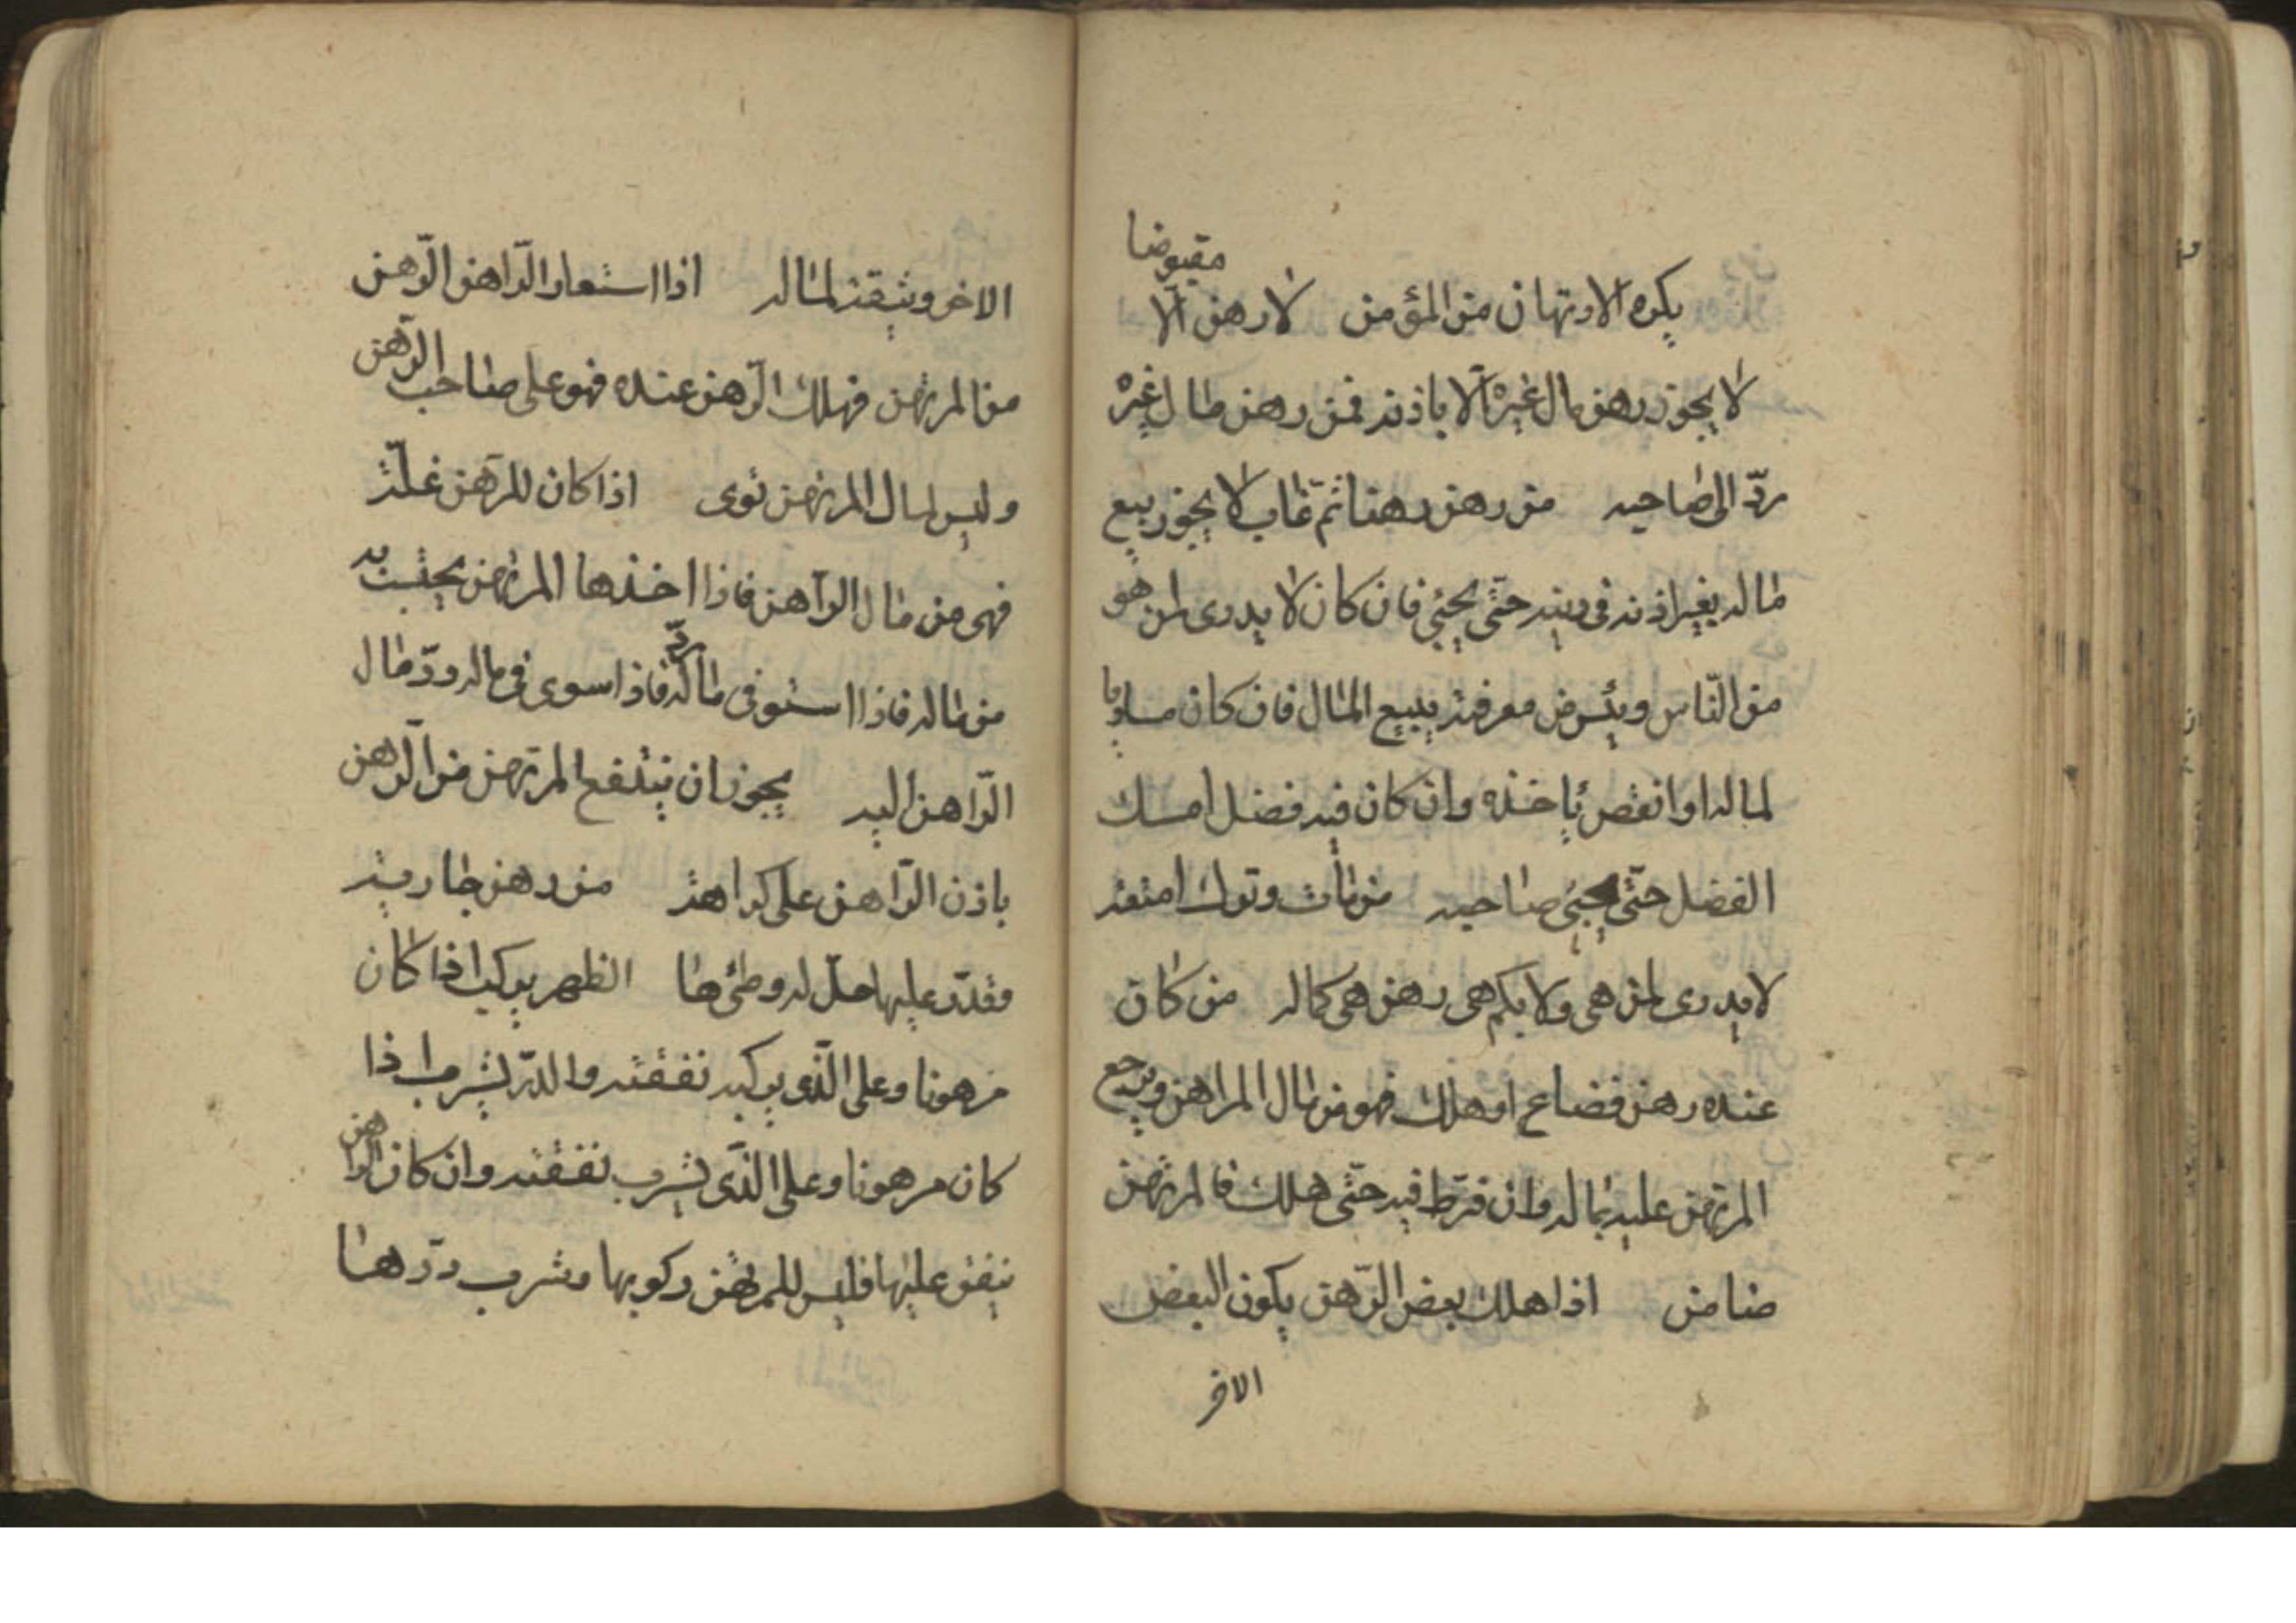 يكره الارتهان من المؤمن لا رهن الا مقبوضا
لا يجوز رهن مال غيره الا باذنه فمن رهن مال غيره
ردّ الى صاحبه من رهن رهنا ثم غاب لا يجوز بيع
ماله بغير اذنه فى دينه حتّى يجيئ فان كان لا يدرى لمن هو
من النّاس ويئس من معرفته يبيع المال فان كان مساويا
لماله او انقص ياخذه وان كان فيه فضل امسك
الفضل حتّى يجيئ صاحبه من مات وترك امتعه
لا يدرى لمن هى ولا بكم هى رهن هى كماله من كان
عنده رهن فضاع او هلك فهو من مال المراهن ويرجع
المرتهن عليه بماله وان فرّط فيه حتّى هلك فالمرتهن
ضامن اذا هلك بعض الرّهن يكون البعض
الاخر
الاخر وثيقة لماله اذا استعار الرّاهن الرّهن
من المرتهن فهلك الرّهن عنده فهو على صاحب الرّهن
وليس لمال المرتهن توى اذا كان للرّهن غلّة
فهى من مال الرّاهن فاذا اخذها المرتهن يحتسب به
من ماله فاذا استوفى ماله ردّ فاذا سوى فى ماله وردّ مال
الرّاهن اليه يجوز ان ينتفع المرتهن من الرّهن
باذن الرّاهن على كراهة من رهن جارية
وقدر عليها حلّ له وطئها الظهر يركب اذا كان
مرهونا وعلى الّذى يركبه نفقته والدّر يشرب اذا
كان مرهونا وعلى الذّى يشرب نفقته وان كان الراهن
ينفق عليها فليس للمرتهن ركوبها وشرب درّها